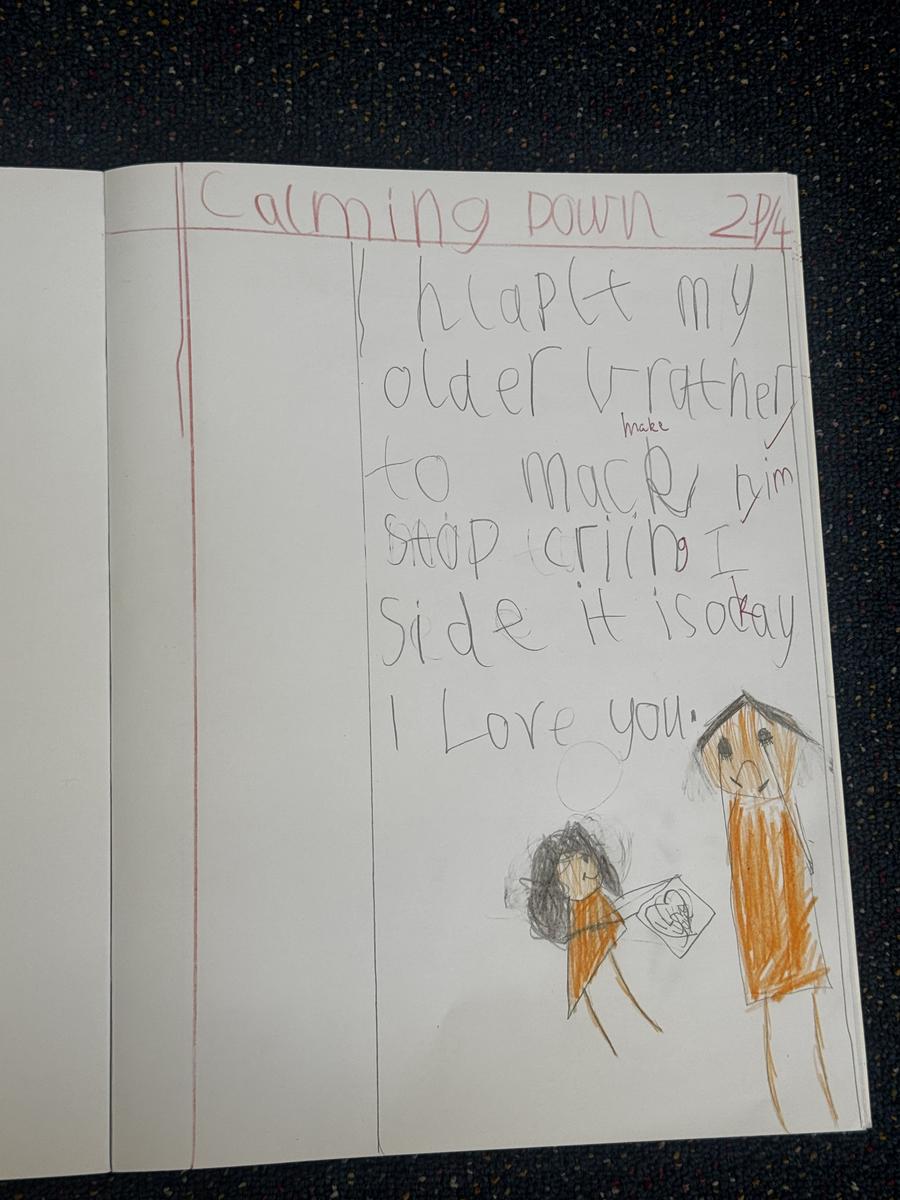 Calming Down 2P/4
I hlaplt my
older brather
make
to mack him
stop criing I
side it is okay
I Love you.